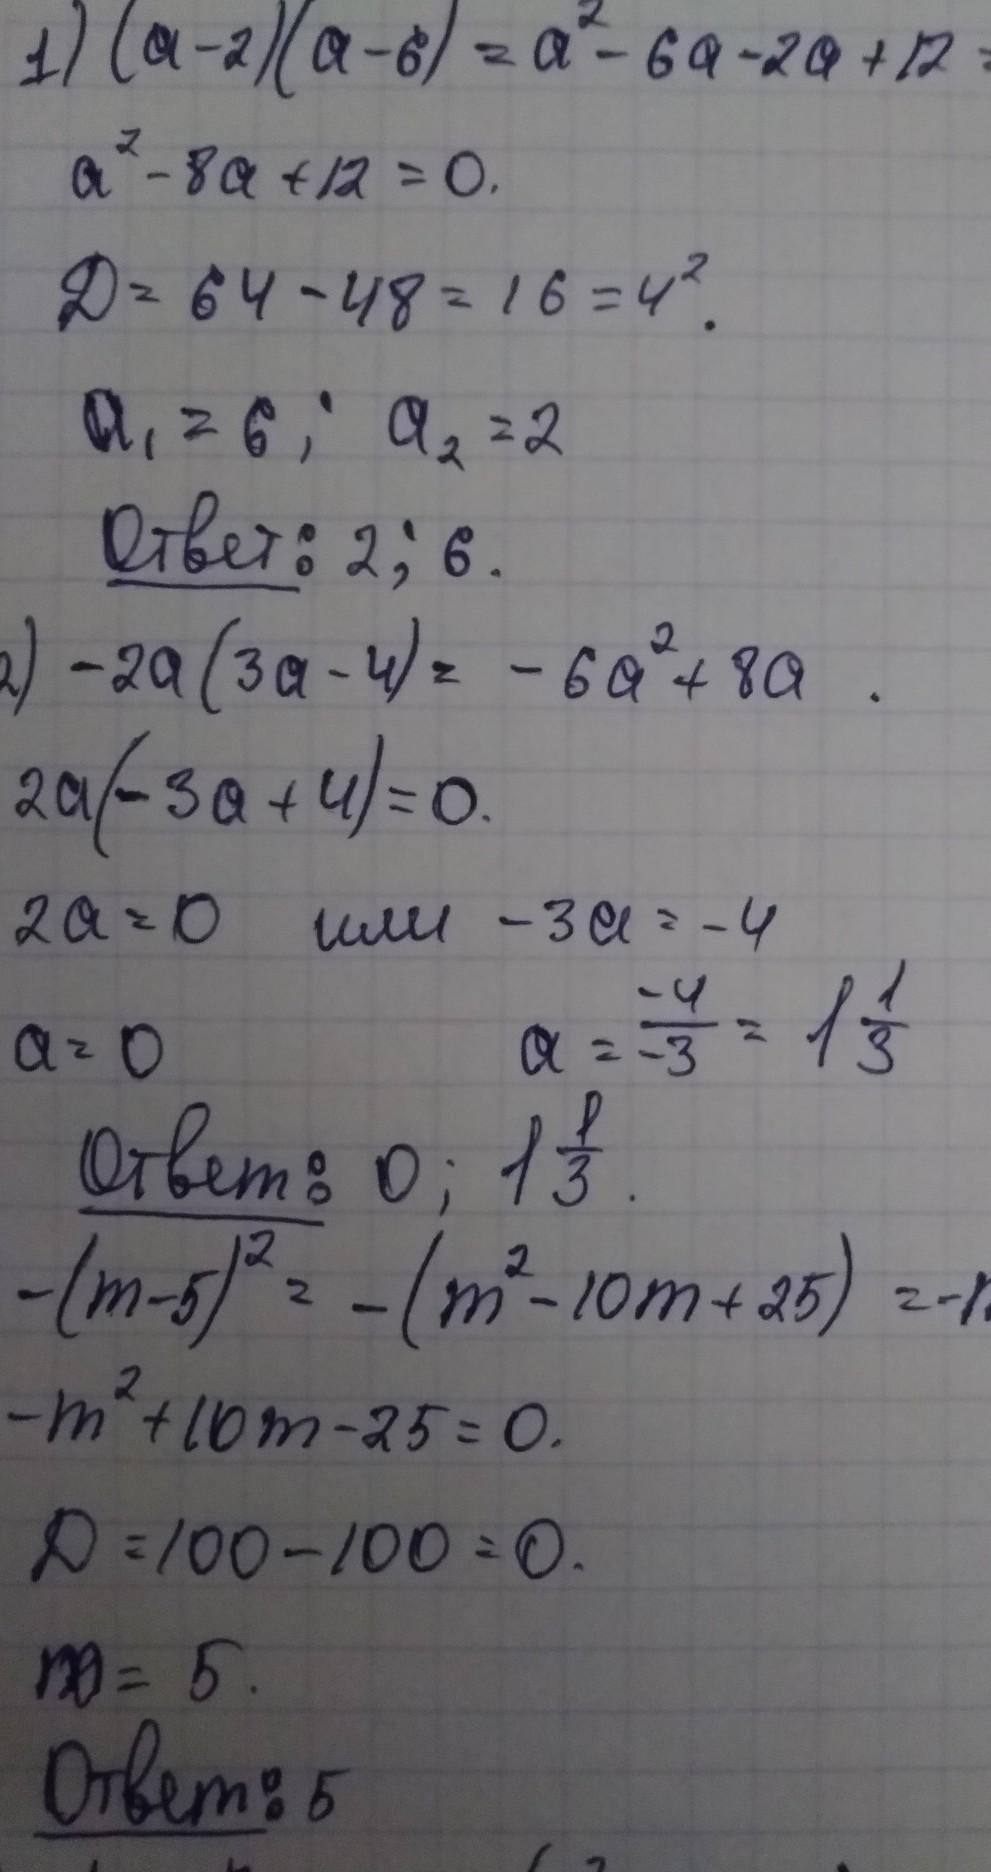 1) (a-2)(a-6) = a² - 6a - 2a + 12 =
a² - 8a + 12 = 0.
D = 64 - 48 = 16 = 4².
a₁ = 6; a₂ = 2
Ответ: 2; 6.
2) -2a(3a-4) = -6a² + 8a.
2a(-3a+4) = 0.
2a = 0 или -3a = -4
a = 0 a = -4/-3 = 1 1/3
Ответ: 0; 1 1/3.
-(m-5)² = -(m² - 10m + 25) = -
-m² + 10m - 25 = 0.
D = 100 - 100 = 0.
m = 5.
Ответ: 5